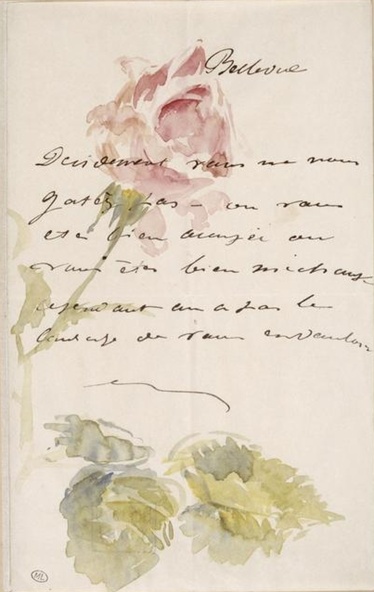 Bellevue
Décidément vous ne nous
gatéz pas - ou vous
etes bien occupée ou
vous êtes bien méchante
cependant on a pas le
courage de vous en vouloir
ML